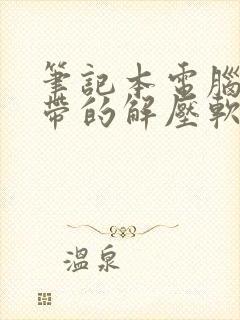 筆記本電腦
帶的解壓軟
溫泉